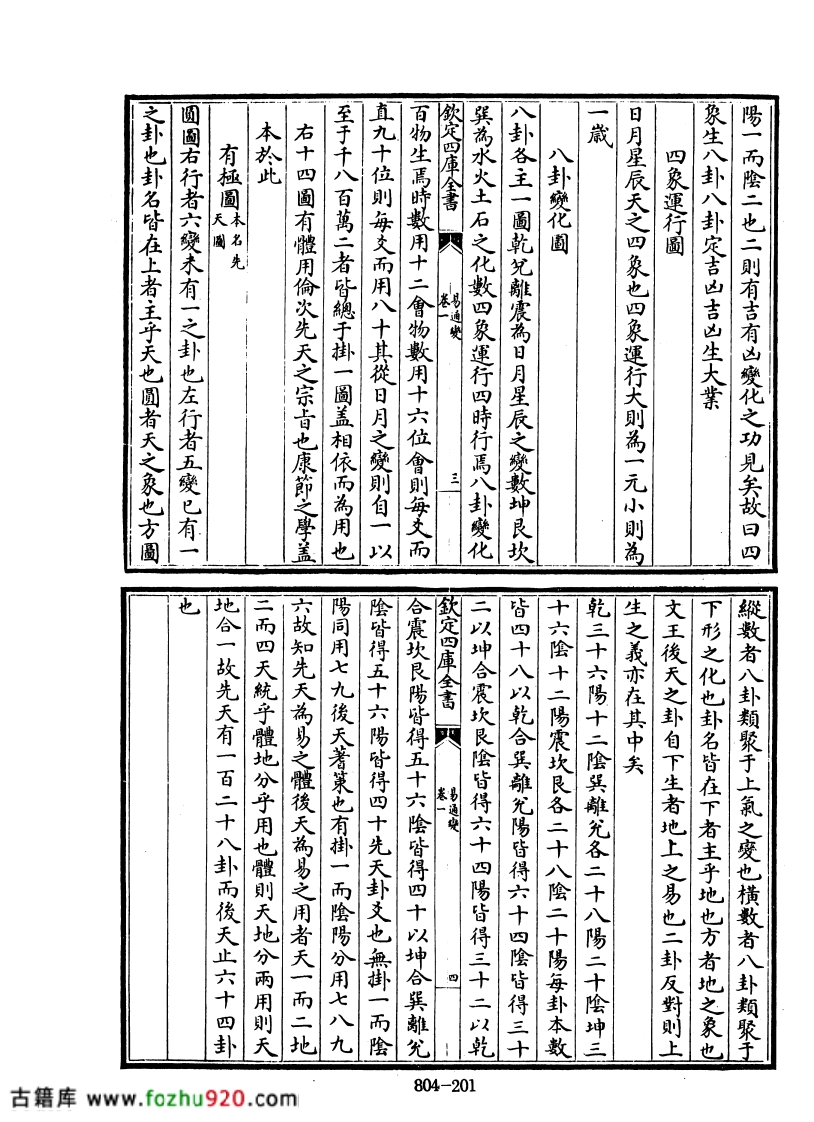 陽一而陰二也二則有吉有凶變化之功見矣故曰四
象生八卦八卦定吉凶吉凶生大業
四象運行圖
日月星辰天之四象也四象運行大則為一元小則為
一歲
八卦變化圖
八卦各主一圖乾兌離震為日月星辰之變數坤艮坎
巽為水火土石之化數四象運行四時行焉八卦變化
欽定四庫全書
易通變
卷一
三
百物生焉時數用十二會物數用十六位會則每爻而
直九十位則每爻而用八十其從日月之變則自一以
至于千八百萬二者皆總于掛一圖盖相依而為用也
右十四圖有體用倫次先天之宗旨也康節之學盖
本於此
有極圖本名先天圖
圓圖右行者六變未有一之卦也左行者五變已有一
之卦也卦名皆在上者主乎天也圓者天之象也方圖
縱數者八卦類聚于上氣之變也橫數者八卦類聚于
下形之化也卦名皆在下者主乎地也方者地之象也
文王後天之卦自下生者地上之易也二卦反對則上
生之義亦在其中矣
乾三十六陽十二陰巽離兌各二十八陽二十陰坤三
十六陰十二陽震坎艮各二十八陰二十陽每卦本數
皆四十八以乾合巽離兌陽皆得六十四陰皆得三十
二以坤合震坎艮陰皆得六十四陽皆得三十二以乾
欽定四庫全書
易通變
卷一
四
合震坎艮陽皆得五十六陰皆得四十以坤合巽離兌
陰皆得五十六陽皆得四十先天卦爻也無掛一而陰
陽同用七九後天蓍策也有掛一而陰陽分用七八九
六故知先天為易之體後天為易之用者天一而二地
二而四天統乎體地分乎用也體則天地分兩用則天
地合一故先天有一百二十八卦而後天止六十四卦
也
804-201
古籍库 www.fozhu920.com